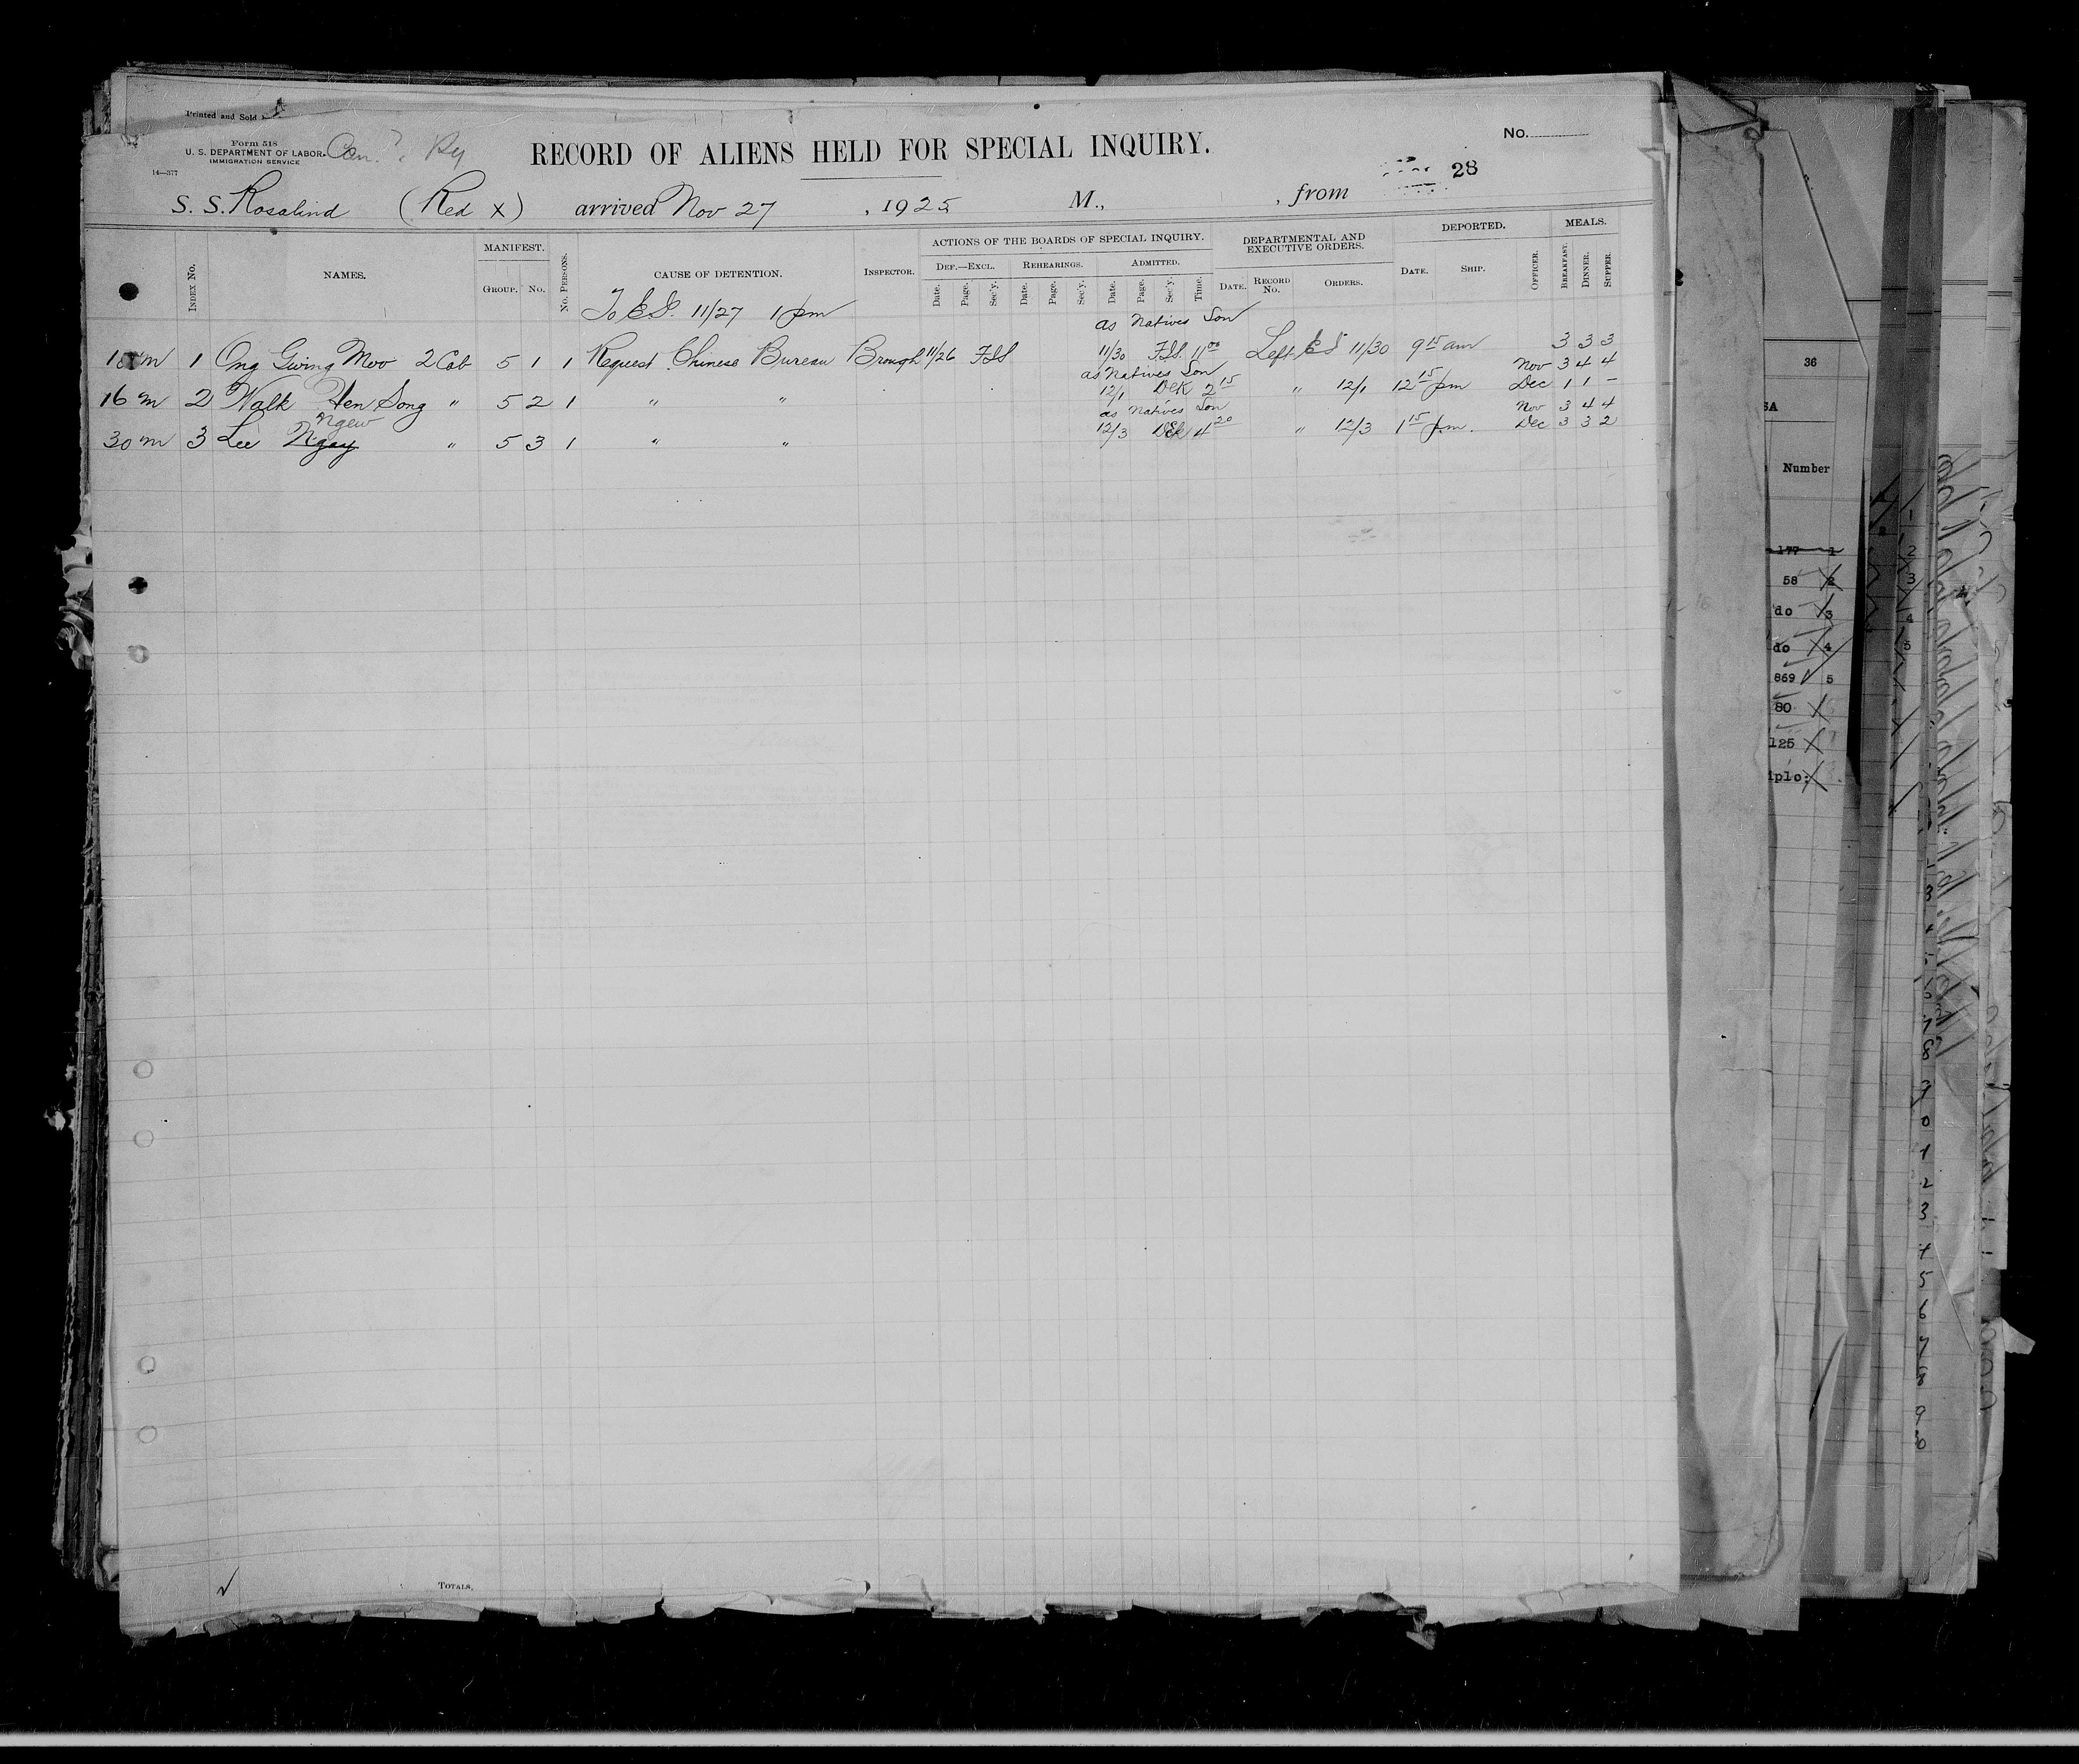 Printed and Sold
Form 518
U. S. DEPARTMENT OF LABOR
IMMIGRATION SERVICE
14—377
Can. Ry
RECORD OF ALIENS HELD FOR SPECIAL INQUIRY.
No.
28
S. S. Rosalind (Red X) arrived Nov 27, 1925 M., , from
INDEX NO. NAMES. MANIFEST. GROUP. NO. NO. PERSONS. CAUSE OF DETENTION. INSPECTOR. ACTIONS OF THE BOARDS OF SPECIAL INQUIRY. DEF.—EXCL. Date. Page. Sec'y. REHEARINGS. Date. Page. Sec'y. ADMITTED. Date. Page. Sec'y. Time. DEPARTMENTAL AND EXECUTIVE ORDERS. DATE. RECORD NO. ORDERS. DEPORTED. DATE. SHIP. OFFICER. MEALS. BREAKFAST. DINNER. SUPPER.
To E.I. 11/27 1 pm
as Natives Son
m 1 Ong Giving Moo 2 Cab 5 1 1 Request Chinese Bureau Brough 11/26 FSS 11/30 FSS. 11 00 Left EI 11/30 9 15 am 3 3 3
as Natives Son Nov 3 4 4
16 m 2 Walk Hen Song " 5 2 1 " " 12/1 DEK 2 15 " 12/1 12 15 pm Dec 1 1 –
as Natives Son Nov 3 4 4
Ngew
30 m 3 Lee Ngay " 5 3 1 " " 12/3 DEK 4 20 " 12/3 1 15 p.m. Dec 3 3 2
TOTALS,
36
SA
Number
177 1
58 2
do 3
do 4
869 5
80
125
iplo:
1
2
3
4
5